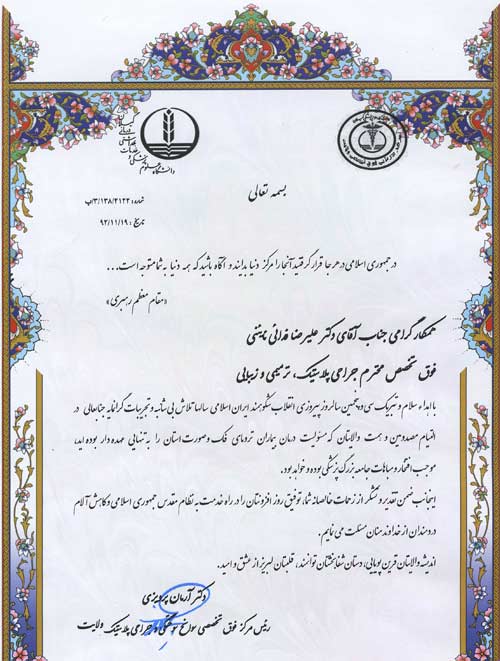 دانشگاه علوم پزشکی
و خدمات
بهداشتی
درمانی
گیلان
بسمه تعالی
شماره: ۳/۱۳۸/۲۱۲۲
تاریخ: ۹۲/۱۱/۱۹
در جمهوری اسلامی در هر جا قرار گرفتید آنجا را مرکز دنیا بدانید و آگاه باشید که همه دنیا به شما متوجه است...
«مقام معظم رهبری»
همکار گرامی جناب آقای دکتر علیرضا فدائی نائینی
فوق تخصص محترم جراحی پلاستیک، ترمیمی و زیبایی
با اهداء سلام و تبریک سی و پنجمین سالروز پیروزی انقلاب شکوهمند ایران اسلامی سالها تلاش بی شائبه و تجربیات گرانمایه جنابعالی در
التیام مصدومین و همت والایتان که مسئولیت درمان بیماران ترومای فک و صورت استان را به تنهایی عهده دار بوده اید،
موجب افتخار و مباهات جامعه بزرگ پزشکی بوده و خواهد بود.
اینجانب ضمن تقدیر و تشکر از زحمات خالصانه شما، توفیق روز افزونتان را در راه خدمت به نظام مقدس جمهوری اسلامی و کاهش آلام
دردمندان از خداوند منان مسئلت می نمایم.
اندیشه والایتان قرین پویایی، دستان شفابخشتان توانمند، قلبتان لبریز از عشق و امید.
دکتر آرمان پرویزی
رئیس مرکز فوق تخصصی سوانح سوختگی و جراحی پلاستیک ولایت